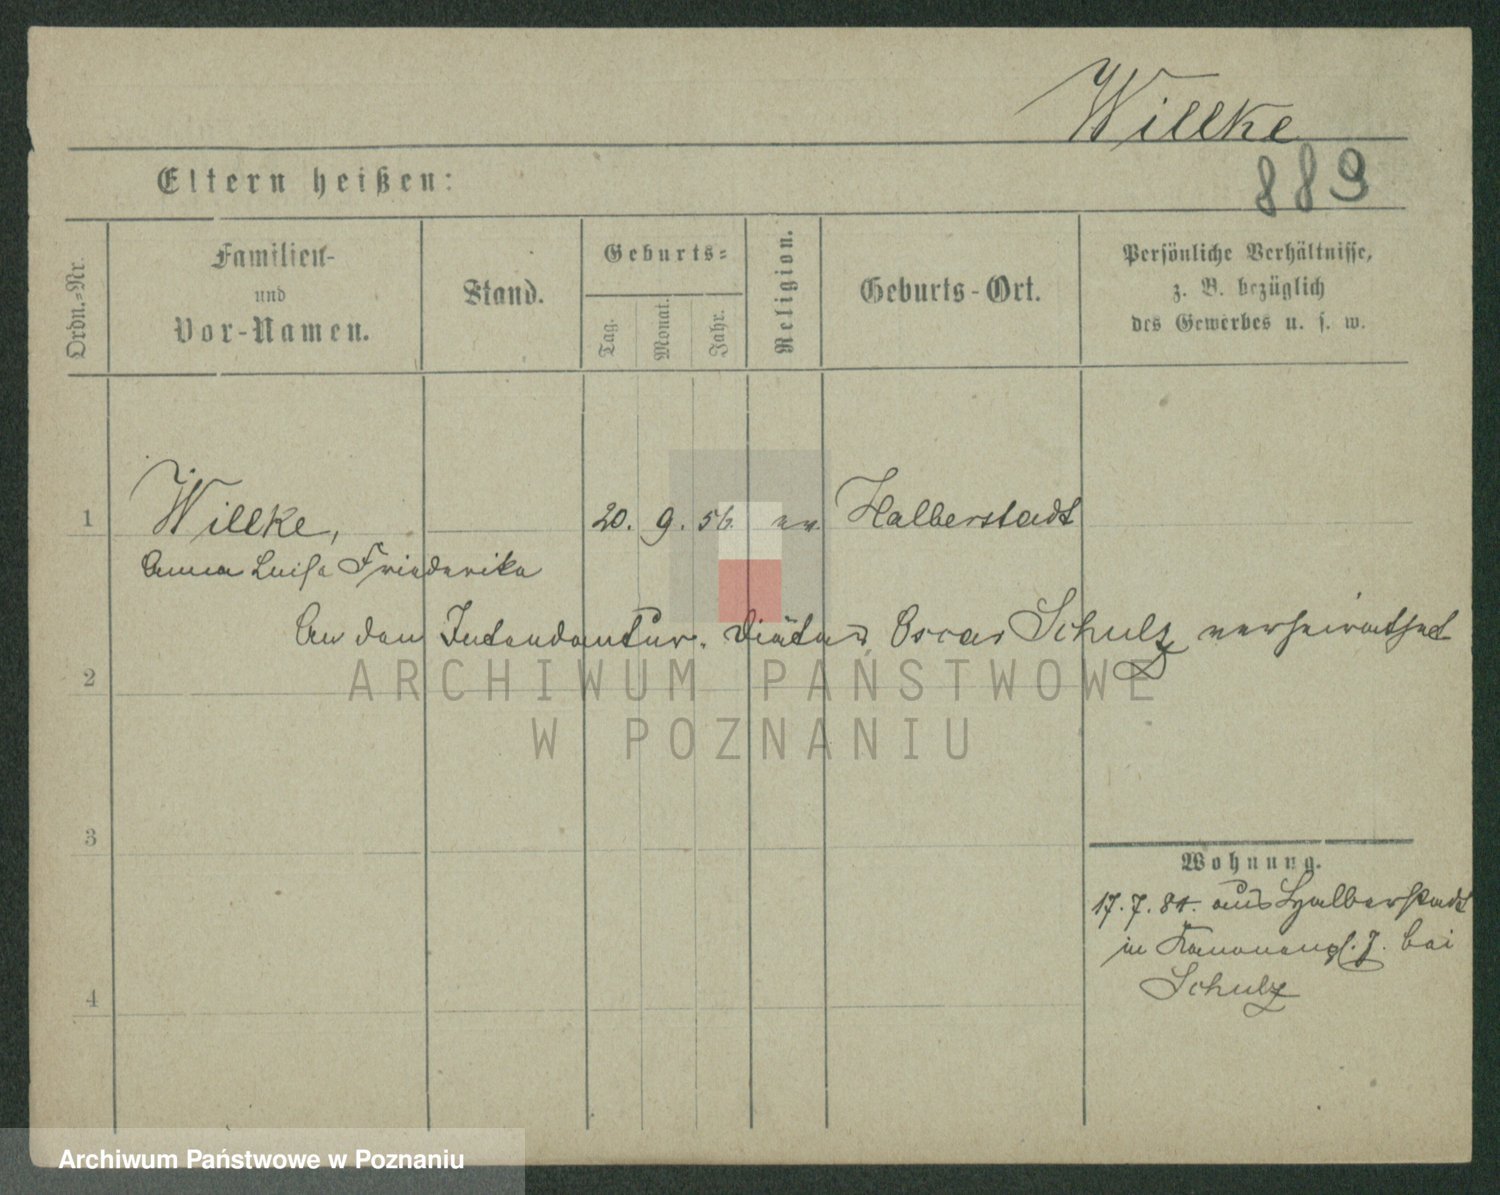 Willke
889
Eltern heißen:
Ordn.-Nr.
Familien-
und
Vor-Namen.
Stand.
Geburts-
Tag.
Monat.
Jahr.
Religion.
Geburts-Ort.
Persönliche Verhältnisse,
z. B. bezüglich
des Gewerbes u. s. w.
1 Willke, 20. 9. 56. ev. Halberstadt
Anna Luise Friederike
An den Intendantur. Diätar Oscar Schulz verheirathet
2
ARCHIWUM PAŃSTWOWE
W POZNANIU
3
Wohnung.
17. 7. 81. aus Halberstadt
in Kanonenpl. 7. bei
Schulz
4
Archiwum Państwowe w Poznaniu